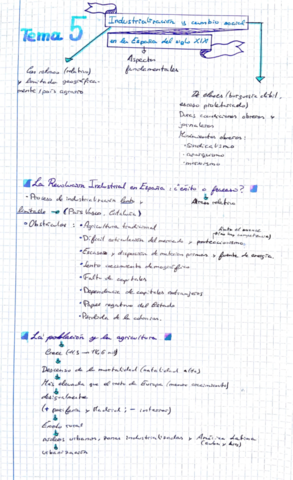 Tema 5
Industrialización y cambio social
en la España del siglo XIX
Aspectos
fundamentales
Con retraso (relativo)
y limitada geográfica-
mente: país agrario
De clases (burguesía débil,
escaso proletariado)
Duras condiciones obreros y
jornaleros
Movimientos obreros:
• Sindicalismo
• anarquismo
• marxismo
La Revolución Industrial en España: ¿éxito o fracaso?
• Proceso de industrialización lento y
limitado → (País Vasco, Cataluña)
Atraso relativo
• Obstáculos: • Agricultura tradicional
• Difícil articulación del mercado y proteccionismo.
• Escasez y dispersión de materias primas y fuentes de energía.
• Lento crecimiento demográfico
• Falta de capitales
• Dependencia de capitales extranjeros
• Papel negativo del Estado
• Pérdida de las colonias.
La población y la agricultura
Crece
Descenso de la mortalidad (natalidad alta)
Más elevada que el resto de Europa (menos crecimiento)
desigualmente
(+ periferia y Madrid; - interior)
Éxodo rural
urbanos, zonas industrializadas y América Latina
urbanización